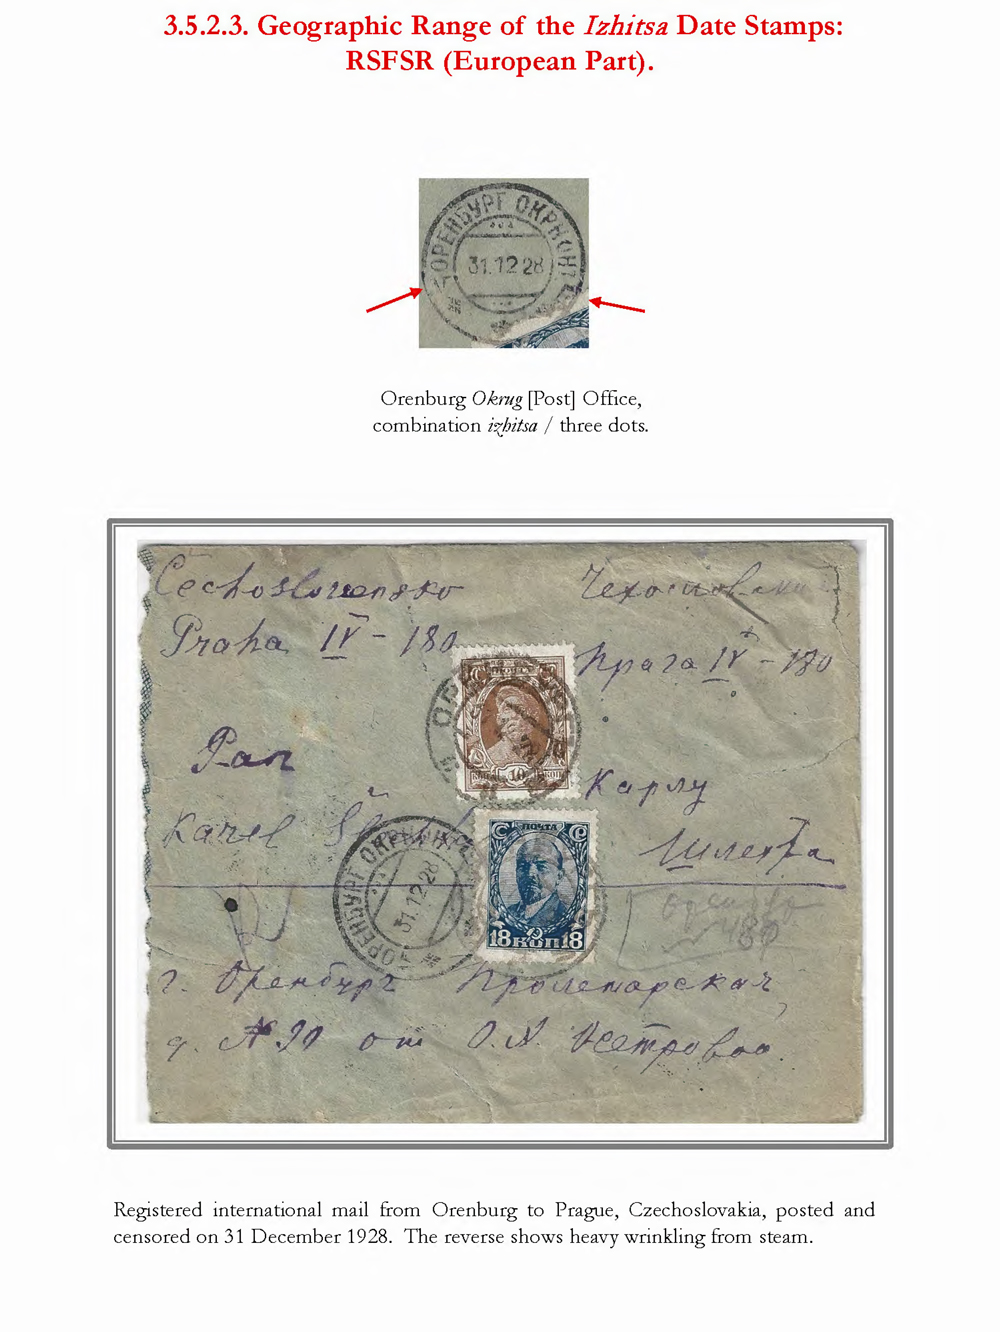 3.5.2.3. Geographic Range of the Izhitsa Date Stamps:
RSFSR (European Part).
ОРЕНБУРГ ОКРКОНТ
31.12 28
Orenburg Okrug [Post] Office,
combination izhitsa / three dots.
Čechoslovensko
Praha IV - 180
Pan
Karel
Чехословакия
Прага IV - 180
Карлу
ПОЧТА
10 КОП
ПОЧТА
18 КОП 18
ОРЕНБУРГ ОКРКОНТ
31.12 28
г. Оренбург Пролетарская
д. № 90 от О.
Registered international mail from Orenburg to Prague, Czechoslovakia, posted and
censored on 31 December 1928. The reverse shows heavy wrinkling from steam.